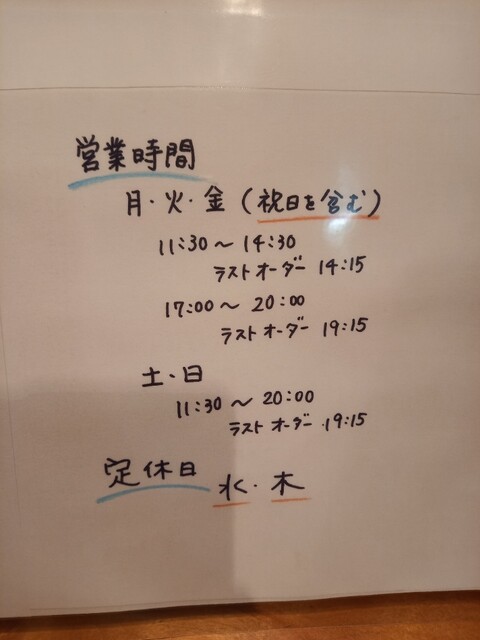 営業時間
月・火・金(祝日を含む)
11:30～14:30
ラストオーダー 14:15
17:00～20:00
ラストオーダー 19:15
土・日
11:30～20:00
ラストオーダー 19:15
定休日 水・木